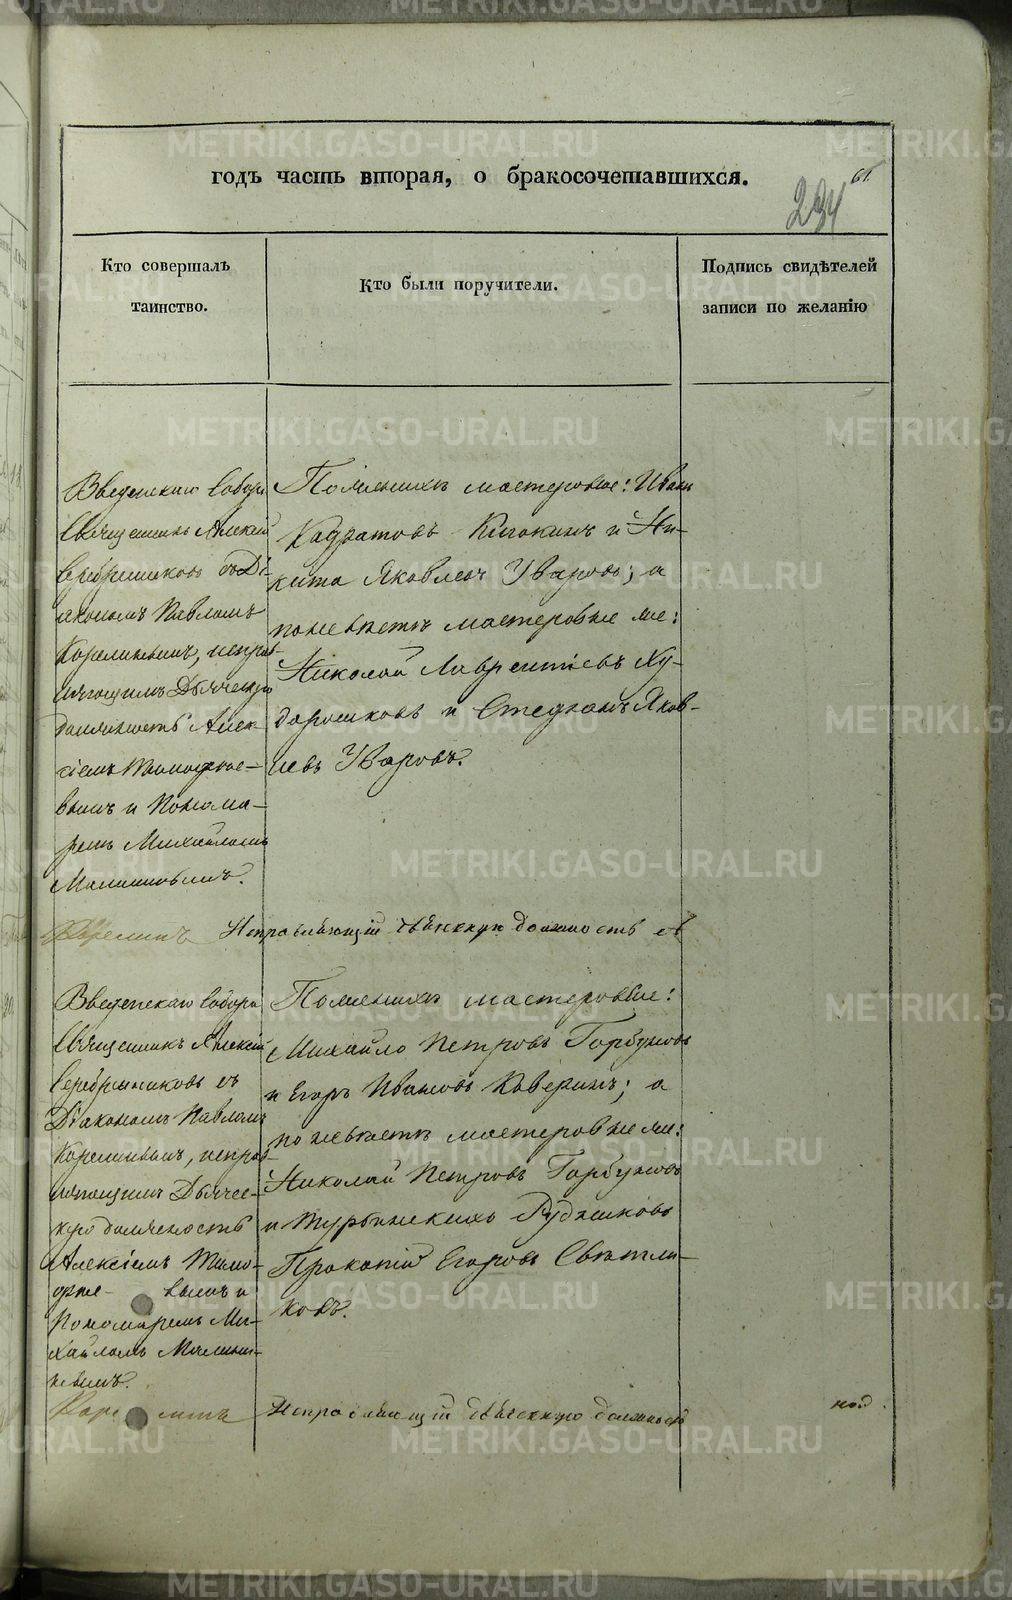 годъ часть вторая, о бракосочетавшихся.
61.
234
Кто совершалъ
таинство.
Кто были поручители.
Подпись свидѣтелей
записи по желанію
Введенскаго Собора
Священникъ Алексій
Серебрениковъ съ Ді-
акономъ Павломъ
Корелинымъ, исправ-
ляющимъ Дьяческую
должность Алек-
сіемъ Тимофѣе-
вымъ и Понома-
ремъ Михайломъ
Малининымъ.
По женихѣ мастеровые: Иванъ
и Ни-
кита Яковлевъ Уваровъ; а
по невѣстѣ мастеровые же:
Николай Лаврентіевъ Ху-
дорошковъ и Степанъ Яков-
левъ Уваровъ.
Корелинъ Исправляющій дьяческую должность
Введенскаго Собора
Священникъ Алексій
Серебрениковъ съ
Діакономъ Павломъ
Корелинымъ, исправ-
ляющимъ Дьячес-
кую должность
Алексіемъ Тимо-
фѣе- вымъ и
Пономаремъ Ми-
хайломъ Малини-
нымъ.
По женихѣ мастеровые:
Михайло Петровъ Горбуновъ
и Егоръ Ивановъ Каверинъ; а
по невѣстѣ мастеровые же:
Николай Петровъ Горбуновъ
и Турьинскихъ Рудниковъ
Прокопій Егоровъ Свѣтли-
ковъ.
Корелинъ Исправляющій дьяческую должность
METRIKI.GASO-URAL.RU